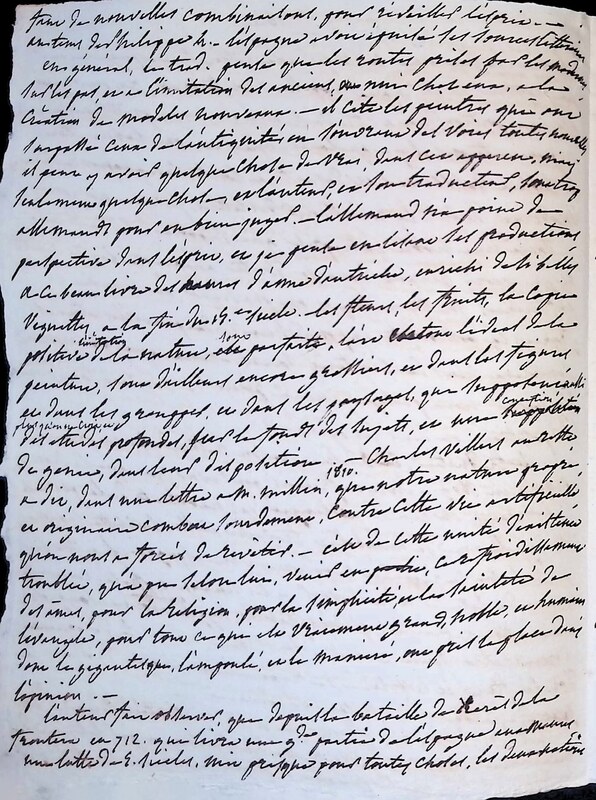 de nouvelles combinaisons, pour réveiller l'esprit. —
au tems de Philippe 2. — l'espagne avoit épuisé les sources
en général, le trad. pense que les routes prises par les modernes
sur les pas, et à l'imitation des anciens, ont nui chez eux, à la
Création de modeles nouveaux. — il cite les peintres qui ont
surpassé ceux de l'antiquité en s'ouvrant des voies toutes nouvelles
il peut y avoir quelque chose de vrai, dans cet apperçu, mais
seulement quelque chose. et l'auteur, et son traducteur, sont trop
allemands pour en bien juger. — l'allemand n'a point de
perspective dans l'esprit, et je pense en lisant les productions
a ce beau livre des heures d'anne d'autriche, enrichi de si belles
Vignettes, à la fin du siècle. les fleurs, les fruits, la copie
positive de la nature, sont parfaits, l'air et le ton l'idéal de la
peinture, sont d'ailleurs encore grossiers, et dans les figures
et dans les grouppes, et dans les paysages, qui supposeroient
des études profondes, sur le fonds des sujets, et une
de genie, dans leur disposition. 1810. Charles Villers au reste
a dit, dans une lettre a M. Millin, que notre nature propre,
et originaire combat sourdement, contre cette vie artificielle
qu'on nous a forcés de revêtir. — c'est de cette unité d'existence
troublée, qu'a pu selon lui, venir en partie, ce refroidissement
des âmes, pour la religion, pour la simplicité, et la sainteté de
l'évangile, pour tout ce qui est vraiment grand, noble, et humain
dont le gigantesque, l'ampoulé, et le manieré, ont pris la place dans
l'opinion. —
l'auteur fait observer, que depuis la bataille de Xerès de la
frontera en 712. qui livra une gde. partie de l'espagne aux maures
une lutte de 8. siècles, mit presque pour toutes choses, les deux nations